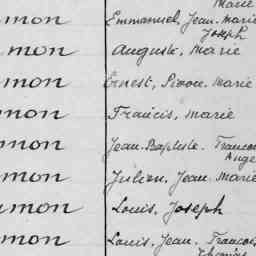 Marie
mon Emmanuel, Jean-Marie
Joseph
mon Auguste, Marie
mon Ernest, Marie
mon Francis, Marie
mon Jean-Baptiste. Francois
Ange
mon Julien. Jean. Marie
mon Louis. Joseph
mon Louis. Jean. Francois